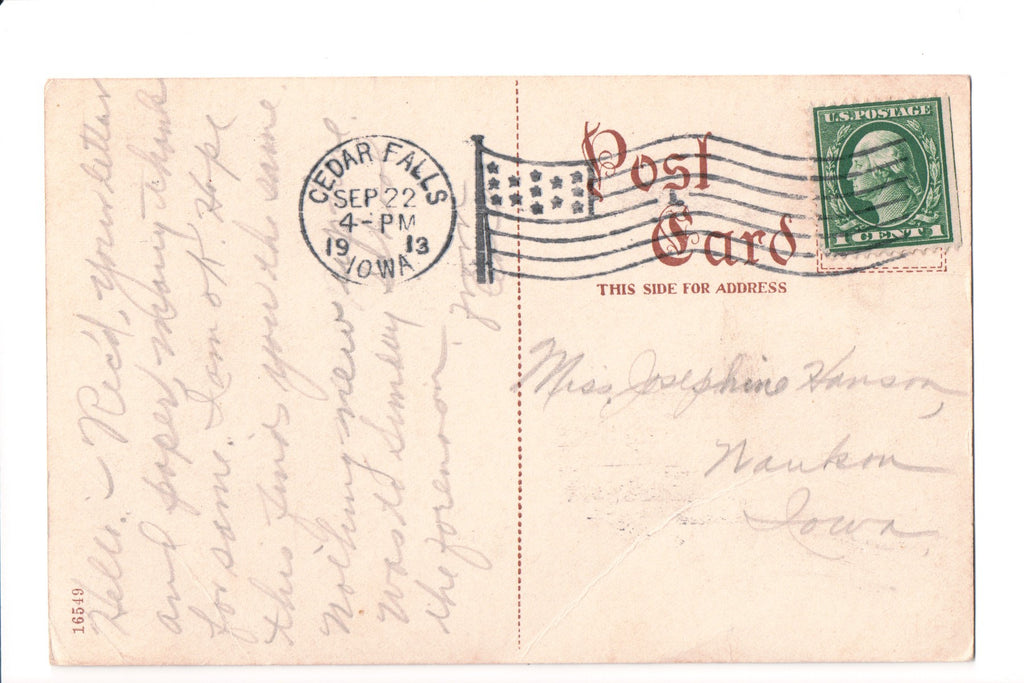 Hello. - Rec'd, your letter
and paper, many thanks
for same. I am O.K. Hope
this finds you the same.
Nothing new here.
was to Sunday
the forenoon
CEDAR FALLS
SEP 22
4-PM
1913
IOWA
Post
Card
THIS SIDE FOR ADDRESS
U.S. POSTAGE
1 CENT 1
Miss. Josephine Hanson,
Waukon
Iowa.
16549